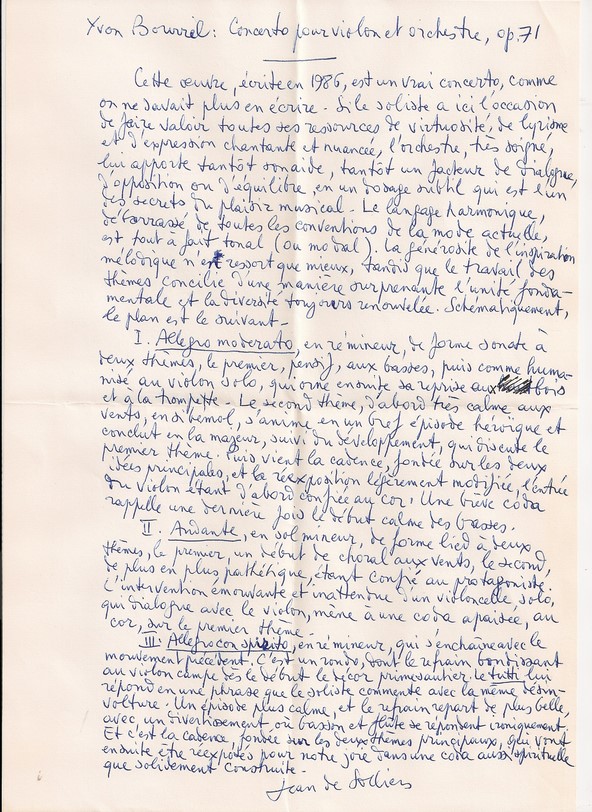 Yvon Bourrel : Concerto pour violon et orchestre, op. 71
Cette œuvre, écrite en 1986, est un vrai concerto, comme
on ne savait plus en écrire. Si le soliste a ici l'occasion
de faire valoir toutes ses ressources de virtuosité, de lyrisme
et d'expression chantante et nuancée, l'orchestre, très soigné,
lui apporte tantôt son aide, tantôt un facteur de dialogue,
d'opposition ou d'équilibre, en un dosage subtil qui est l'un
des secrets du plaisir musical. Le langage harmonique,
débarrassé de toutes les conventions de la mode actuelle,
est tout à fait tonal (ou modal). La générosité de l'inspiration
mélodique n'en ressort que mieux, tandis que le travail des
thèmes concilie d'une manière surprenante l'unité fonda-
mentale et la diversité toujours renouvelée. Schématiquement,
le plan est le suivant.
I. Allegro moderato, en ré mineur, de forme sonate à
deux thèmes, le premier, pensif, aux basses, puis comme huma-
nisé au violon solo, qui orne ensuite sa reprise aux bois
et à la trompette. Le second thème, d'abord très calme aux
vents, en si bémol, s'anime en un bref épisode héroïque et
conclut en la majeur, suivi du développement, qui discute le
premier thème. Puis vient la cadence, fondée sur les deux
idées principales, et la réexposition légèrement modifiée, l'entrée
du violon étant d'abord confiée au cor. Une brève coda
rappelle une dernière fois le début calme des basses.
II. Andante, en sol mineur, de forme lied à deux
thèmes, le premier, un début de choral aux vents, le second,
de plus en plus pathétique, étant confié au protagoniste.
L'intervention émouvante et inattendue d'un violoncelle solo,
qui dialogue avec le violon, mène à une coda apaisée, au
cor, sur le premier thème.
III. Allegro con spirito, en ré mineur, qui s'enchaîne avec le
mouvement précédent. C'est un rondo, dont le refrain bondissant
au violon campe dès le début le décor primesautier. Le tutti lui
répond en une phrase que le soliste commente avec la même désin-
volture. Un épisode plus calme, et le refrain repart de plus belle,
avec un divertissement où basson et flûte se répondent ironiquement.
Et c'est la cadence, fondée sur les deux thèmes principaux, qui vont
ensuite être réexposés pour notre joie dans une coda aussi spirituelle
que solidement construite.
Jean de Solliers